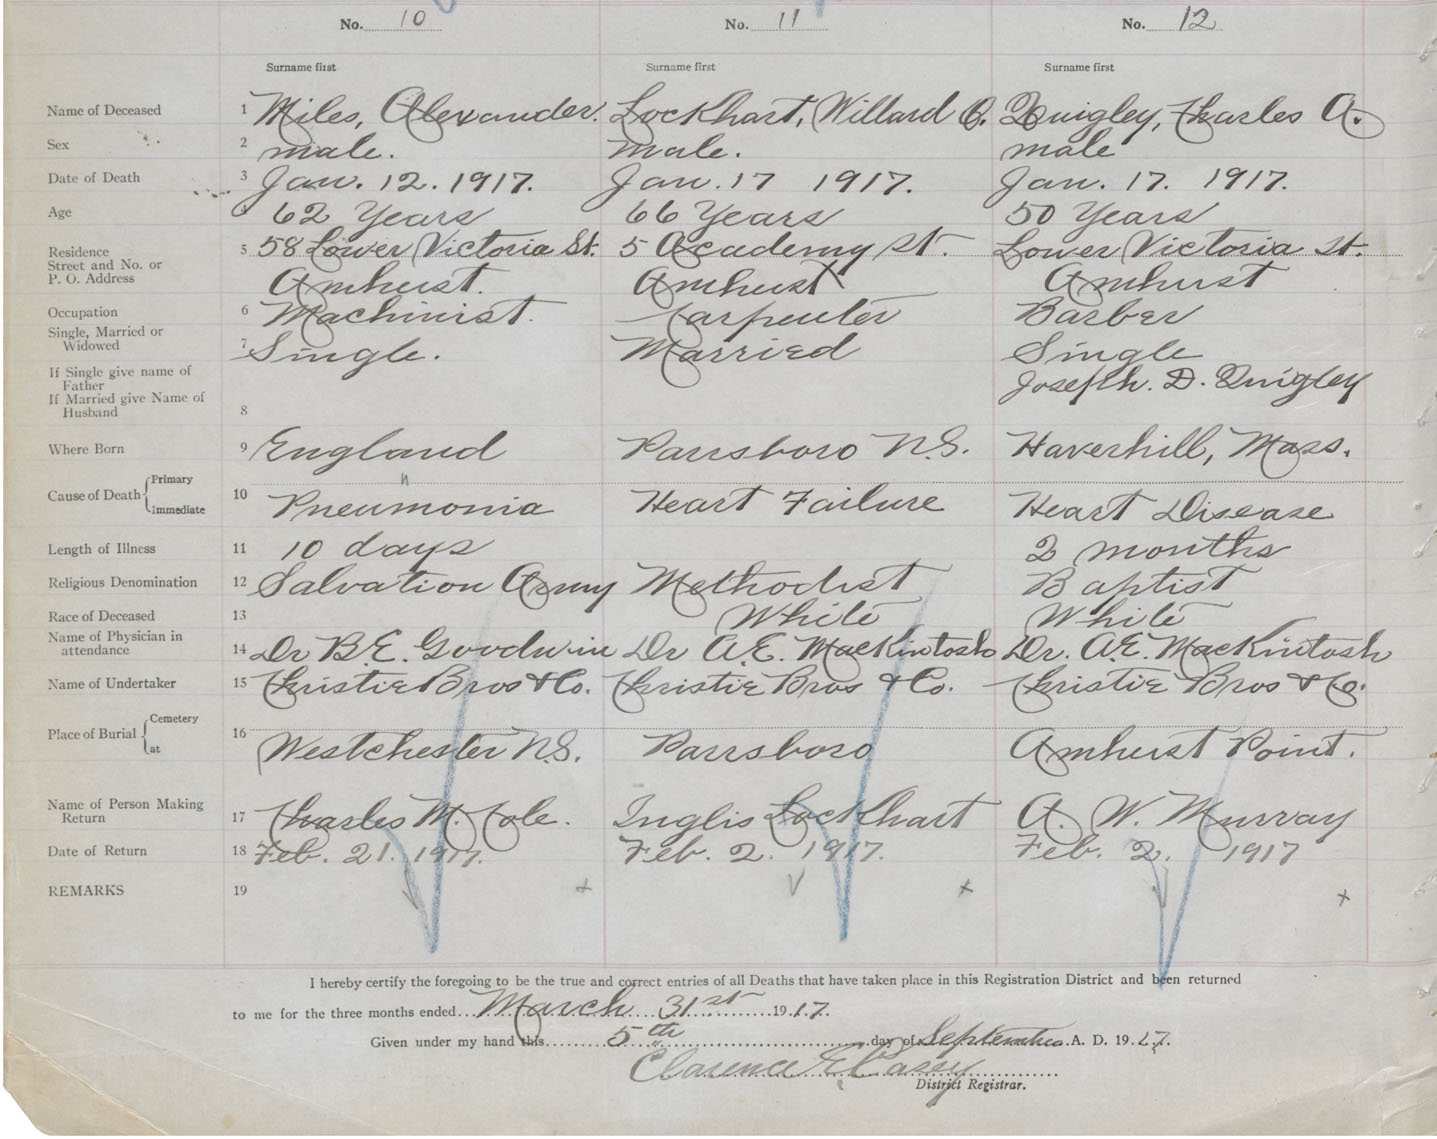 No. 10 No. 11 No. 12
Surname first Surname first Surname first
Name of Deceased 1 Miles, Alexander. Lockhart, Willard C. Quigley, Charles A.
Sex 2 male. male. male
Date of Death 3 Jan. 12. 1917. Jan. 17 1917. Jan. 17. 1917.
Age 4 62 Years 66 Years 50 Years
Residence 5 58 Lower Victoria St. 5 Academy St. Lower Victoria St.
Street and No. or
P. O. Address Amherst. Amherst Amherst
Occupation 6 Machinist. Carpenter Barber
Single, Married or
Widowed 7 Single. Married Single
If Single give name of
Father Joseph. D. Quigley
If Married give Name of
Husband 8
Where Born 9 England Parrsboro N.S. Haverhill, Mass.
Cause of Death Primary
Immediate 10 Pneumonia Heart Failure Heart Disease
Length of Illness 11 10 days 2 months
Religious Denomination 12 Salvation Army Methodist Baptist
Race of Deceased 13 White White
Name of Physician in
attendance 14 Dr B.E. Goodwin Dr A.E. MacKintosh Dr. A.E. MacKintosh
Name of Undertaker 15 Christie Bros & Co. Christie Bros & Co. Christie Bros & Co.
Place of Burial Cemetery
at 16 Westchester N.S. Parrsboro Amherst Point.
Name of Person Making
Return 17 Charles M. Cole. Inglis Lockhart A. W. Murray
Date of Return 18 Feb. 21. 1917. Feb. 2. 1917. Feb. 2. 1917
REMARKS 19
I hereby certify the foregoing to be the true and correct entries of all Deaths that have taken place in this Registration District and been returned
to me for the three months ended March 31st 1917.
Given under my hand this 5th day of September A. D. 1917.
Clarence E Casey
District Registrar.